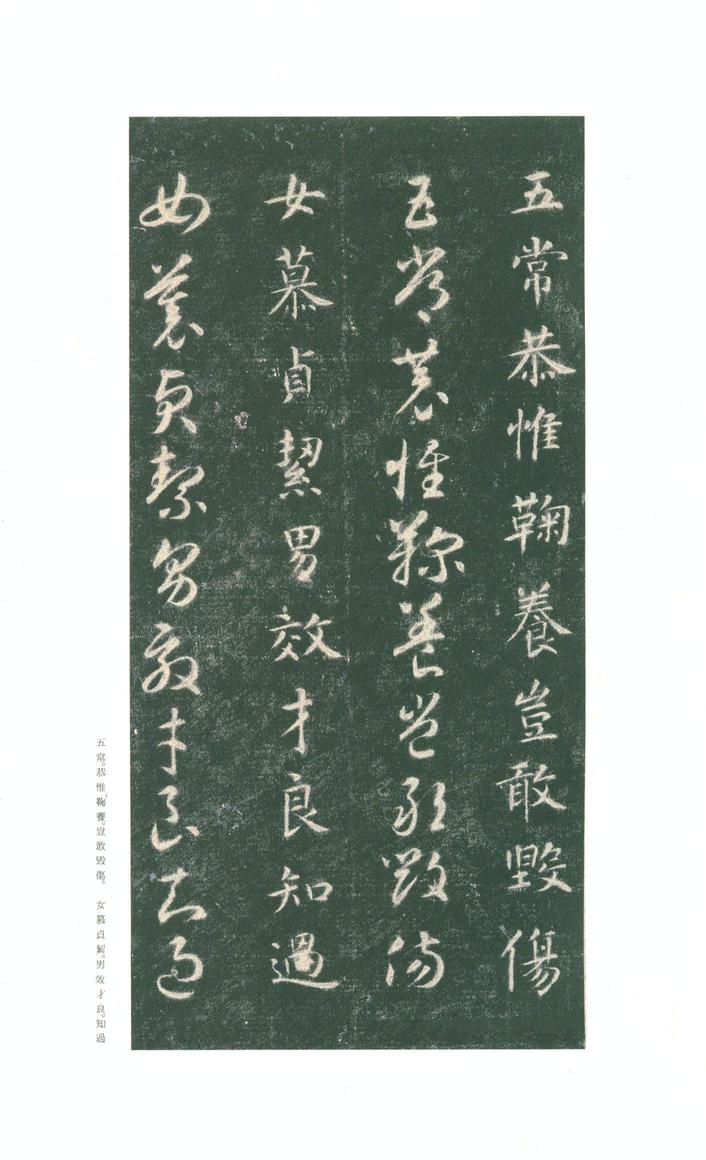 五常恭惟鞠養豈敢毀傷
五常恭惟鞠養豈敢毀傷
女慕貞絜男效才良知過
女慕貞絜男效才良知過
五常。恭惟鞠養。豈敢毀傷。 女慕貞絜。男效才良。知過